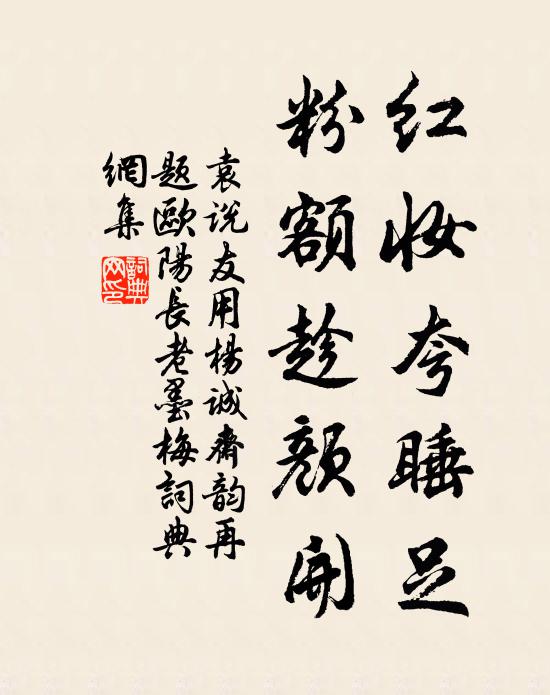 红妆夸睡足
粉额趁颜开
袁说友用杨诚斋韵再
题欧陽長老墨梅詞典
網集
詞典網印